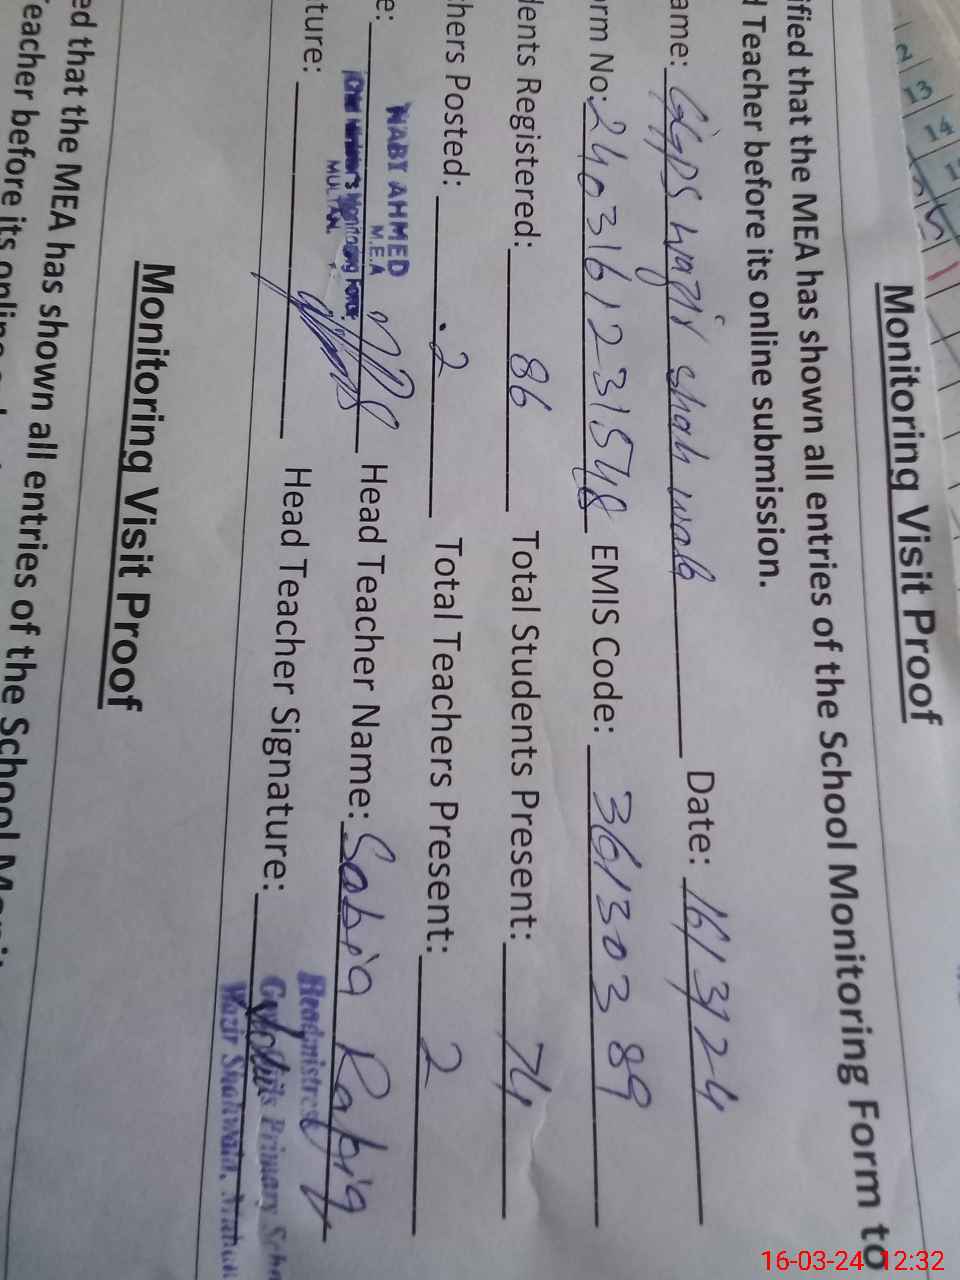 Monitoring Visit Proof
ified that the MEA has shown all entries of the School Monitoring Form to
d Teacher before its online submission.
ame: GGPS wazir shah wala Date: 16/3/24
orm No: 2403161231548 EMIS Code: 36130389
dents Registered: 86 Total Students Present: 74
hers Posted: 2 Total Teachers Present: 2
e: NABI AHMED Head Teacher Name: Sabia Rabia
M.E.A
Monitoring Force
MULTAN
ture: Head Teacher Signature:
Headmistress
Govt Girls Primary Scho
Wazir Shahwala, Multan
Monitoring Visit Proof
ed that the MEA has shown all entries of the School
Teacher before its online
2
13
14
16-03-24 12:32